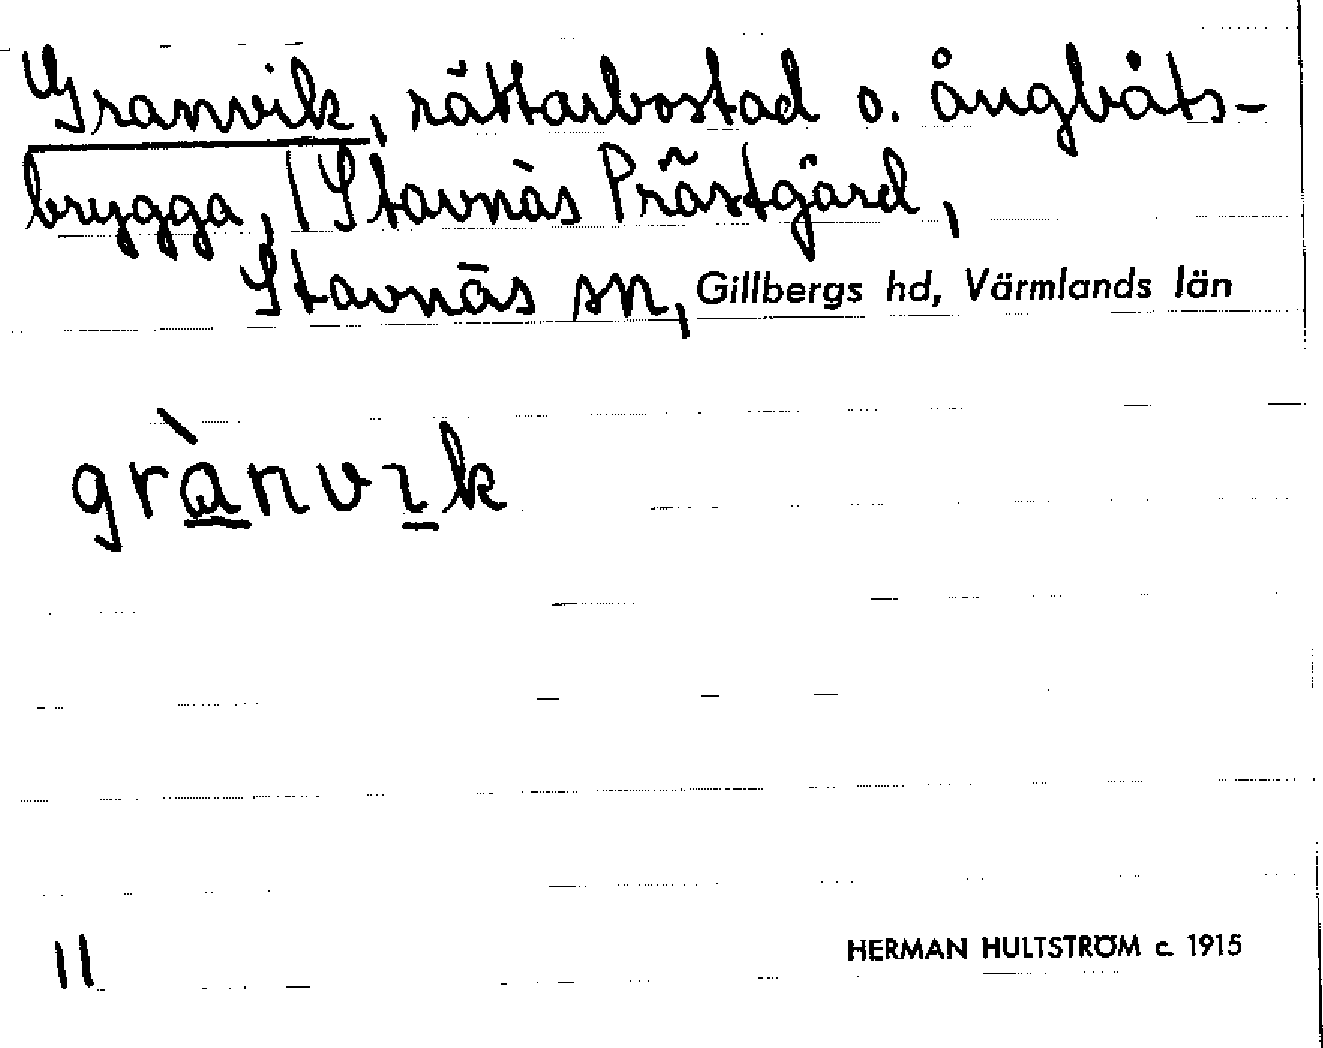 Granvik, rättarbostad o. ångbåts-
brygga, | Stavnäs Prästgård,
Stavnäs sn, Gillbergs hd, Värmlands län
grànvık
11
HERMAN HULTSTRÖM c. 1915